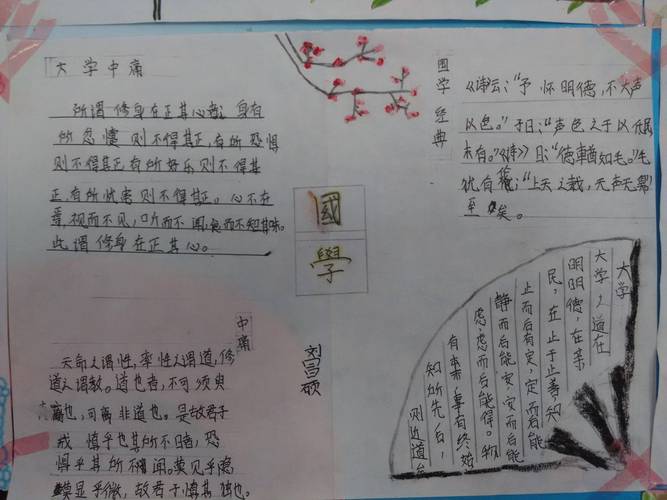 大学中痛
所谓修身在正其心者，身有
所忿懥则不得其正，有所恐惧
则不得其正，有所好乐则不得其
正，有所忧患则不得其正。心不在
焉，视而不见，听而不闻，食而不知其味。
此谓修身在正其心。
国学经典
《诗》云：“予怀明德，不大声
以色。”子曰：“声色之于以化民
末有。”《诗》曰：“德輶如毛。”毛
犹有伦；“上天之载，无声无
至矣。
國
學
刘昌硕
中痛
天命之谓性，率性之谓道，修
道之谓教。道也者，不可须臾
离也，可离非道也。是故君子
戒慎乎其所不睹，恐
惧乎其所不闻。莫见乎隐
莫显乎微，故君子慎其独也。
大学
大学之道在
明明德，在亲
民，在止于至善，知
止而后有定，定而后能
静而后能安，安而后能
虑，虑而后能得。物
有本末，事有终始
知所先后，
则近道